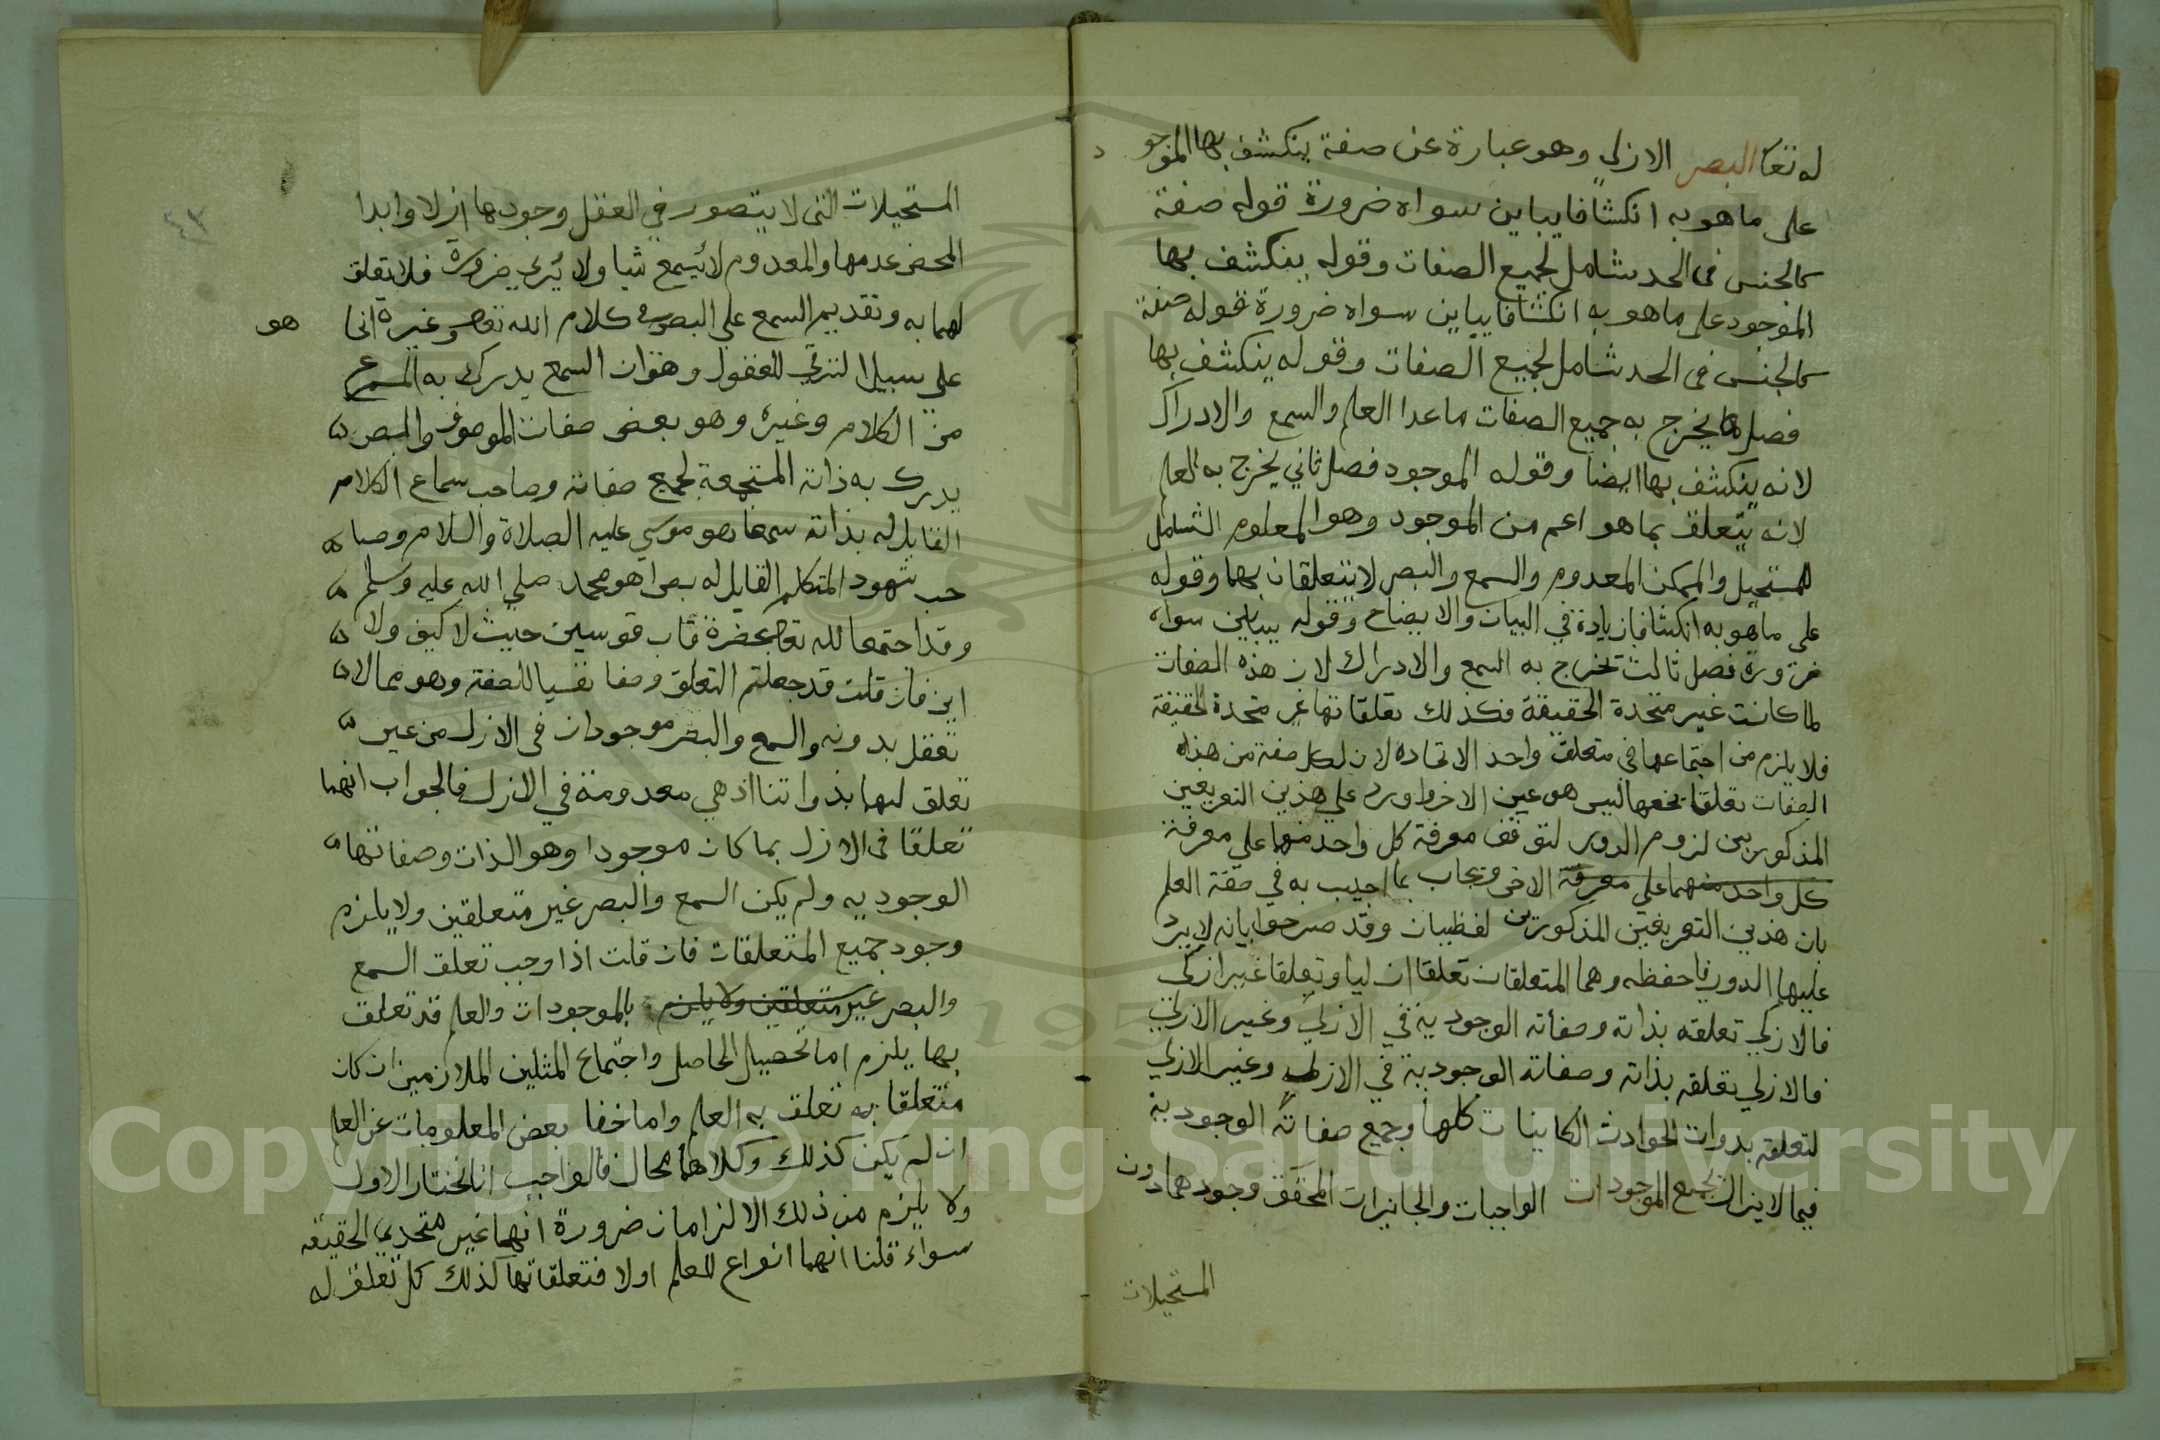 له تعا البصر الازلي وهو عبارة عن صفة ينكشف بها الموجود
على ما هو به انكشافا يباين سواه ضرورة قوله صفة
كالجنس في الحد شامل لجميع الصفات وقوله ينكشف بها
الموجود على ما هو به انكشافا يباين سواه ضرورة قوله صفة
كالجنس في الحد شامل لجميع الصفات وقوله ينكشف بها
فصل يخرج به جميع الصفات ما عدا العلم والسمع والادراك
لانه ينكشف بها ايضا وقوله الموجود فصل ثاني يخرج به العلم
لانه يتعلق بما هو اعم من الموجود وهو المعلوم الشامل
للمستحيل والممكن المعدوم والسمع والبصر لا يتعلقان بهما وقوله
على ما هو به انكشافا زيادة في البيان والايضاح وقوله يباين سواه
ضرورة فصل ثالث تخرج به السمع والادراك لان هذه الصفات
لما كانت غير متحدة الحقيقة فكذلك تعلقاتها غير متحدة الحقيقة
فلا يلزم من اجتماعها في متعلق واحد الاتحاده لان لكل صفة من هذه
الصفات تعلقا يخصها ليس هو عين الاخر واورد علي هذين التعريفين
المذكورين لزوم الدور لتوقف معرفة كل واحد منهما علي معرفة
كل واحد منهما علي معرفة الاخر ويجاب بما اجيب به في صفة العلم
بان هذين التعريفين المذكورين لفظيان وقد صرحوا بانه لا يرد
عليهما الدور فاحفظه وهما المتعلقان تعلقا ازليا وتعلقا غير ازلي
فالازلي تعلقه بذاته وصفاته الوجودية في الازلي وغير الازلي
فالازلي تعلقه بذاته وصفاته الوجودية في الازلي وغير الازلي
لتعلقه بذوات الحوادث الكاينات كلها وجميع صفاته الوجودية
فيما لا يزال بجميع الموجودات الواجبات والجايزات المحقق وجودهما دون
المستحيلات
٤٣
المستحيلات التي لا يتصور في العقل وجودها ازلا وابدا
المحض عدمها والمعدوم لا يُسمع شيا ولا يُرى ضرورة فلا تعلق
لهما به وتقديم السمع علي البصر في كلام الله تعا وغيره انما هو
علي سبيل الترقي للعقول وهو ان السمع يدرك به المسموع
من الكلام وغيره وهو بعض صفات الموصوف والبصر
يدرك به ذاته المتجمعة لجميع صفاته وصاحب سماع الكلام
القايل له بذاته سمعا هو موسي عليه الصلاة والسلام وصا
حب شهود المتكلم القايل له بصرا هو محمد صلي الله عليه وسلم
وقد اجتمعا لله تعا بحضرة قاب قوسين حيث لا كيف ولا
اين فان قلت قد جعلتم التعلق وصفا نفسيا للصفة وهو مما لا
تعقل بدونه والسمع والبصر موجودان في الازل من غير
تعلق لهما بذواتنا اذ هي معدومة في الازل فالجواب انهما
تعلقا في الازل بما كان موجودا وهو الذات وصفاتها
الوجوديه ولم يكن السمع والبصر غير متعلقين ولا يلزم
وجود جميع المتعلقات فان قلت اذا وجب تعلق السمع
والبصر غير متعلقين ولا يلزم بالموجودات والعلم قد تعلق
بها يلزم اما تحصيل الحاصل واجتماع المثلين الملازمين ان كان
متعلقا به تعلق به العلم واما خفا بعض المعلومات عن العلم
ان لم يكن كذلك وكلاهما محال فالواجب انا نختار الاول
ولا يلزم من ذلك الالزامان ضرورة انهما غير متحدي الحقيقه
سواء قلنا انهما انواع للعلم اولا فتعلقاتها كذلك كل تعلق له
1957
Copyright © King Saud University